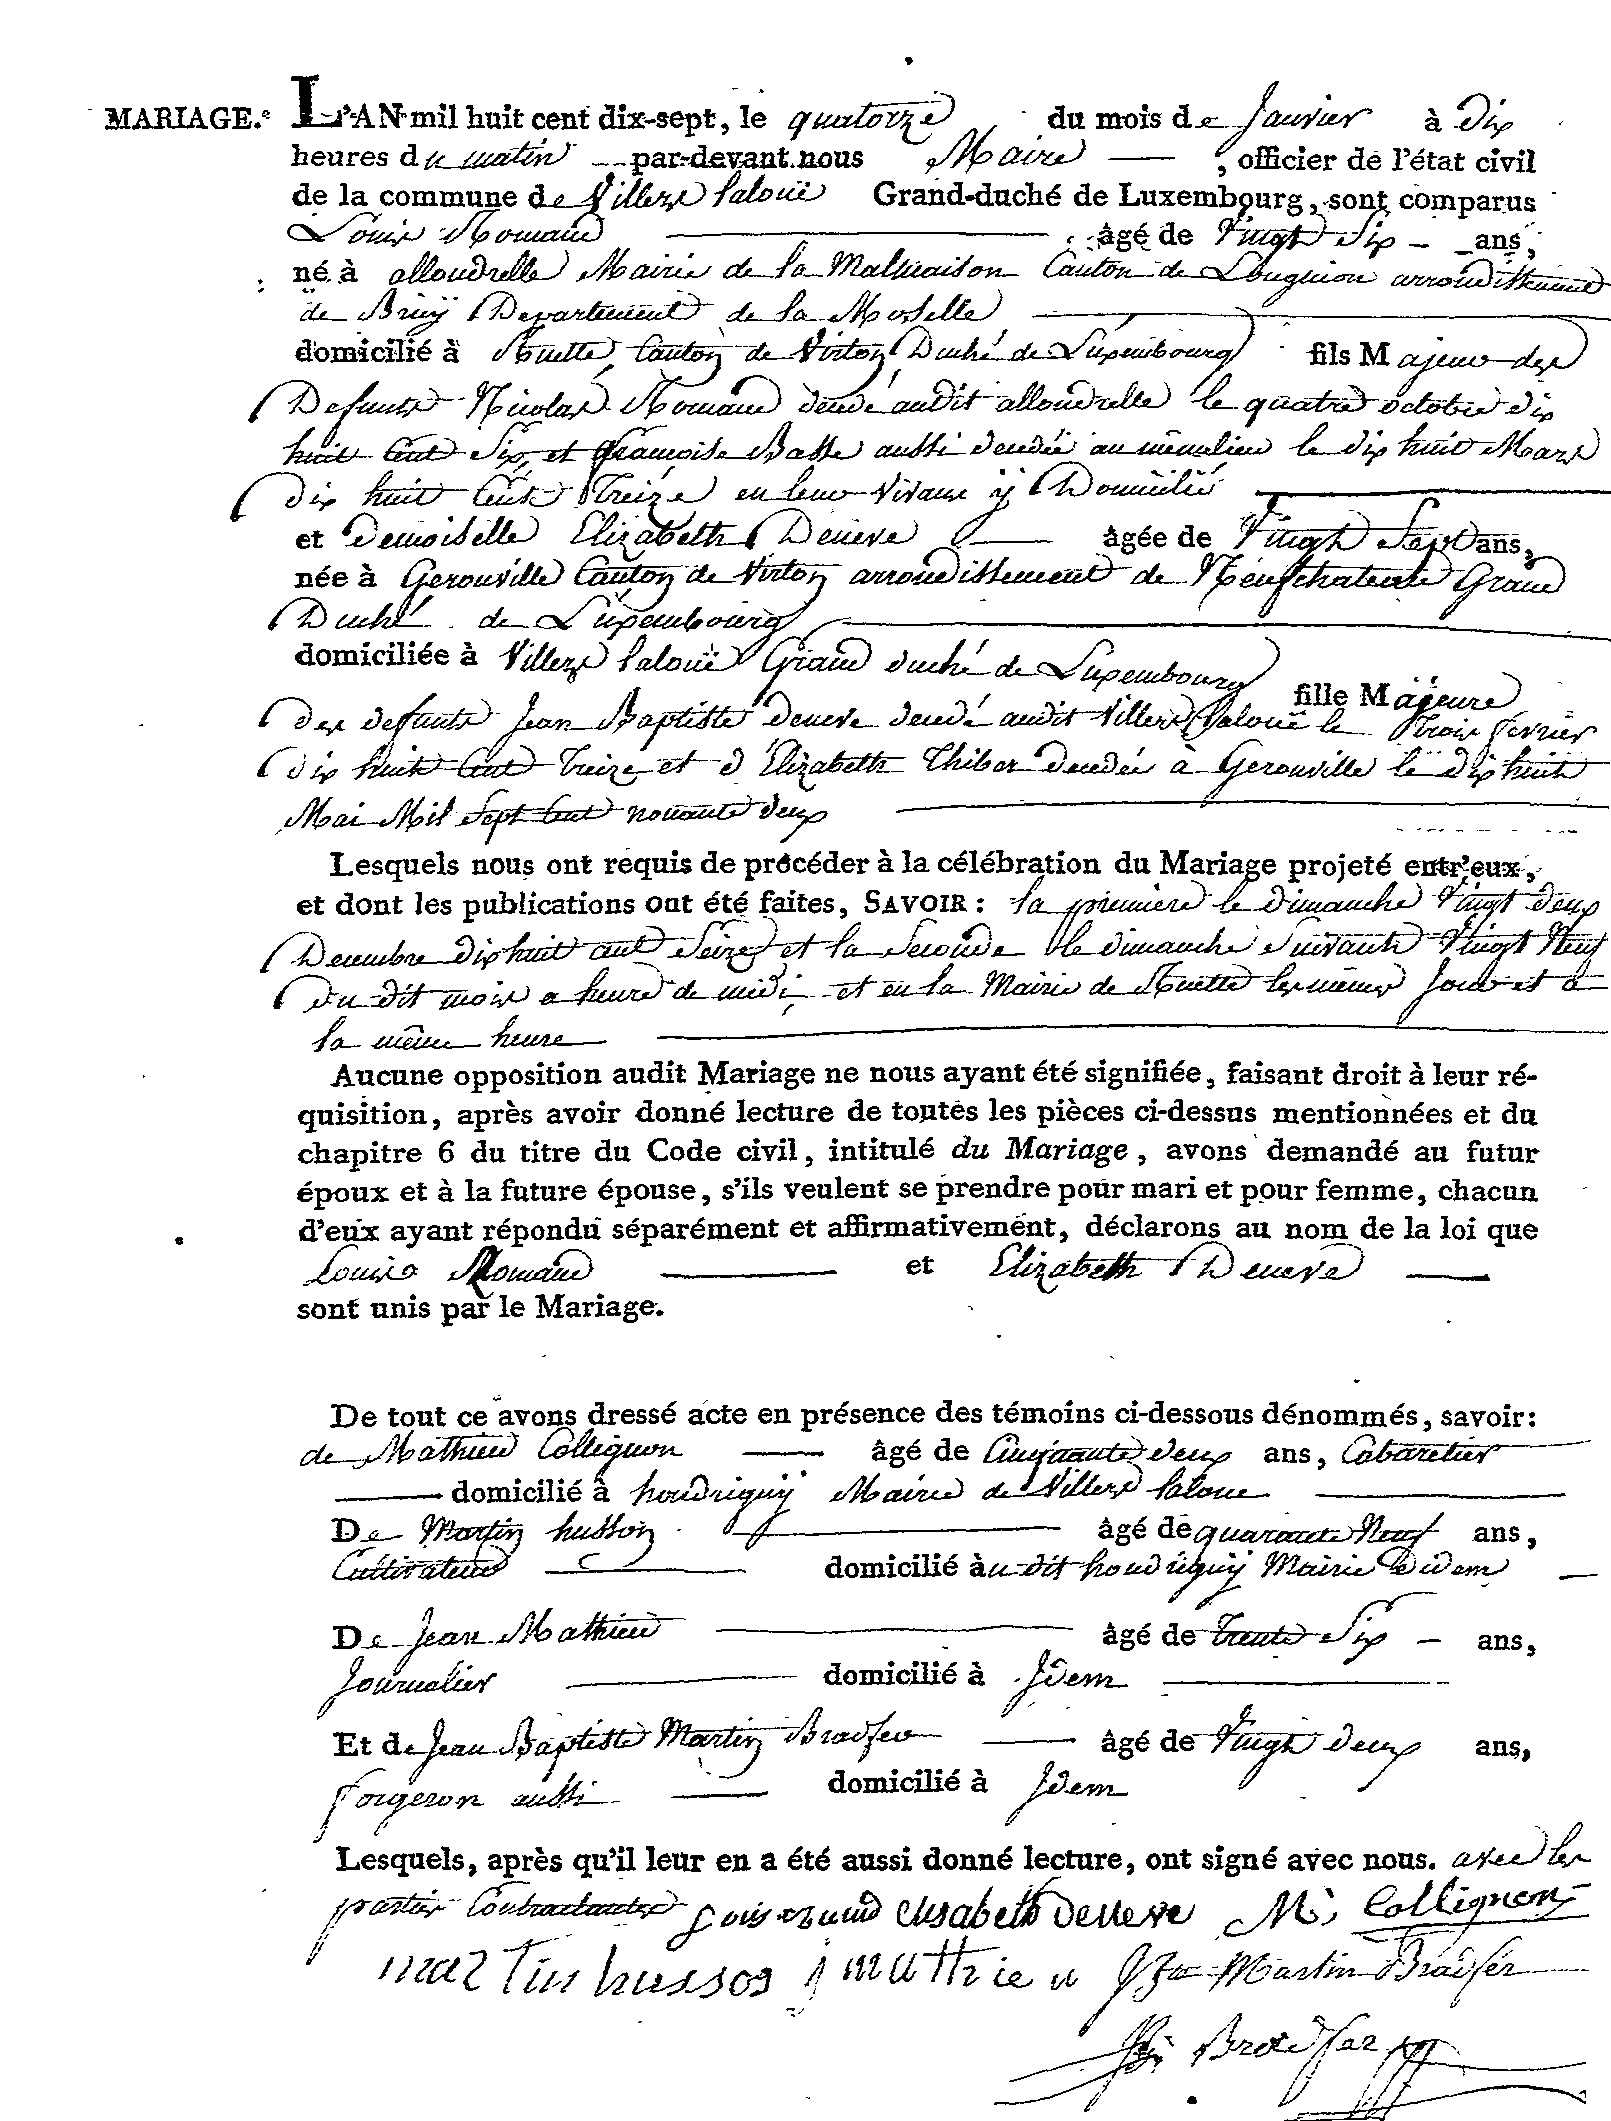 MARIAGE. L'AN mil huit cent dix-sept, le quatorze du mois de Janvier à Dix
heures du matin par-devant nous Maire , officier de l'état civil
de la commune de Villers laloüe Grand-duché de Luxembourg, sont comparus
Louis Romand âgé de Vingt Six ans,
né à allondrelle Mairie de la Malmaison Canton de Longuion arrondissement
de Briÿ Departement de la Moselle
domicilié à Ruette, Canton de Virton Duché de Luxembourg fils Majeur des
Defunts Nicolas Romand décédé audit allondrelle le quatre octobre dix
huit Cent Six, et françoise Basse aussi décédée au même lieu le dix huit Mars
dix huit Cent Treize en leur Vivant ÿ Domicilié
et Demoiselle Elizabeth Deneve âgée de Vingt Sept ans,
née à Gerouville Canton de Virton arrondissement de Neufchateau Grand
Duché de Luxembourg
domiciliée à Villers laloüe Grand duché de Luxembourg fille Majeure
des defunts Jean Baptiste deneve décédé audit Villers laloüe le Trois fevrier
dix huit Cent treize et d'Elizabeth Thiber décédée à Gerouville le dix huit
Mai Mil Sept Cent nonante deux
Lesquels nous ont requis de procéder à la célébration du Mariage projeté entr'eux,
et dont les publications ont été faites, SAVOIR : la premiere le dimanche Vingt deux
Decembre dix huit cent Seize et la Seconde le dimanche Suivant Vingt Neuf
du dit mois a heure de midi, et en la Mairie de Ruette les mêmes Jour et a
la même heure
Aucune opposition audit Mariage ne nous ayant été signifiée, faisant droit à leur ré-
quisition, après avoir donné lecture de toutes les pièces ci-dessus mentionnées et du
chapitre 6 du titre du Code civil, intitulé du Mariage, avons demandé au futur
époux et à la future épouse, s'ils veulent se prendre pour mari et pour femme, chacun
d'eux ayant répondu séparément et affirmativement, déclarons au nom de la loi que
Louis Romand et Elizabeth Deneve
sont unis par le Mariage.
De tout ce avons dressé acte en présence des témoins ci-dessous dénommés, savoir:
de Mathieu Collignon âgé de Cinquante deux ans, Cabaretier
domicilié à houdriguÿ Mairie de Villers laloue
De Martin husson âgé de quarante Neuf ans,
Cultivateur domicilié àu dit houdriguÿ Mairie de idem
De Jean Mathieu âgé de trente Six ans,
Journalier domicilié à Idem
Et de Jean Baptiste Martin Bradfer âgé de Vingt deux ans,
forgeron aussi domicilié à Idem
Lesquels, après qu'il leur en a été aussi donné lecture, ont signé avec nous. avec les
parties Contractantes Elisabeth Deneve M. Collignon
martin husson J mathieu Martin Bradfer
Bradfer